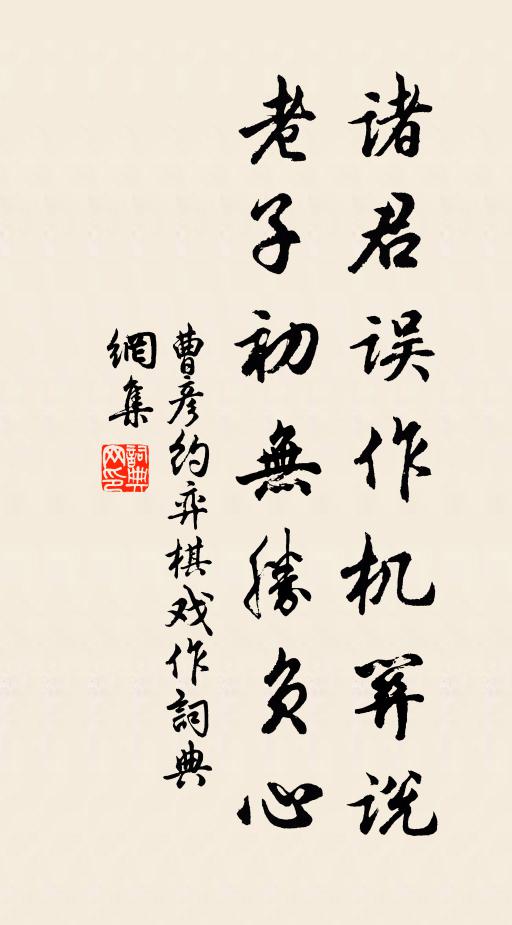 諸君误作机關说
老子初無勝负心
曹彦约弈棋戏作詞典
網集
詞典
网印